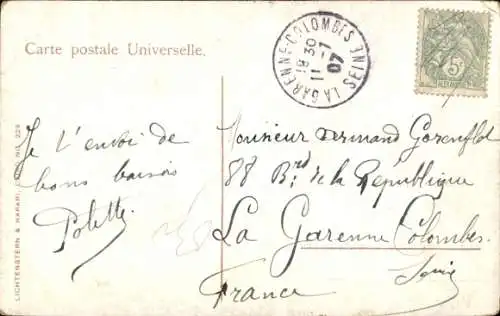 Carte postale Universelle.
LA GARENNE-COLOMBES SEINE
18 30
11 - 7
07
5c
Je t'envoi de
bons baisers
Polette
Monsieur Armand Gorenflot
88 Brd de la République
La Garenne Colombes
Seine
France
LICHTENSTERN & HARARI, CAIRO No. 229